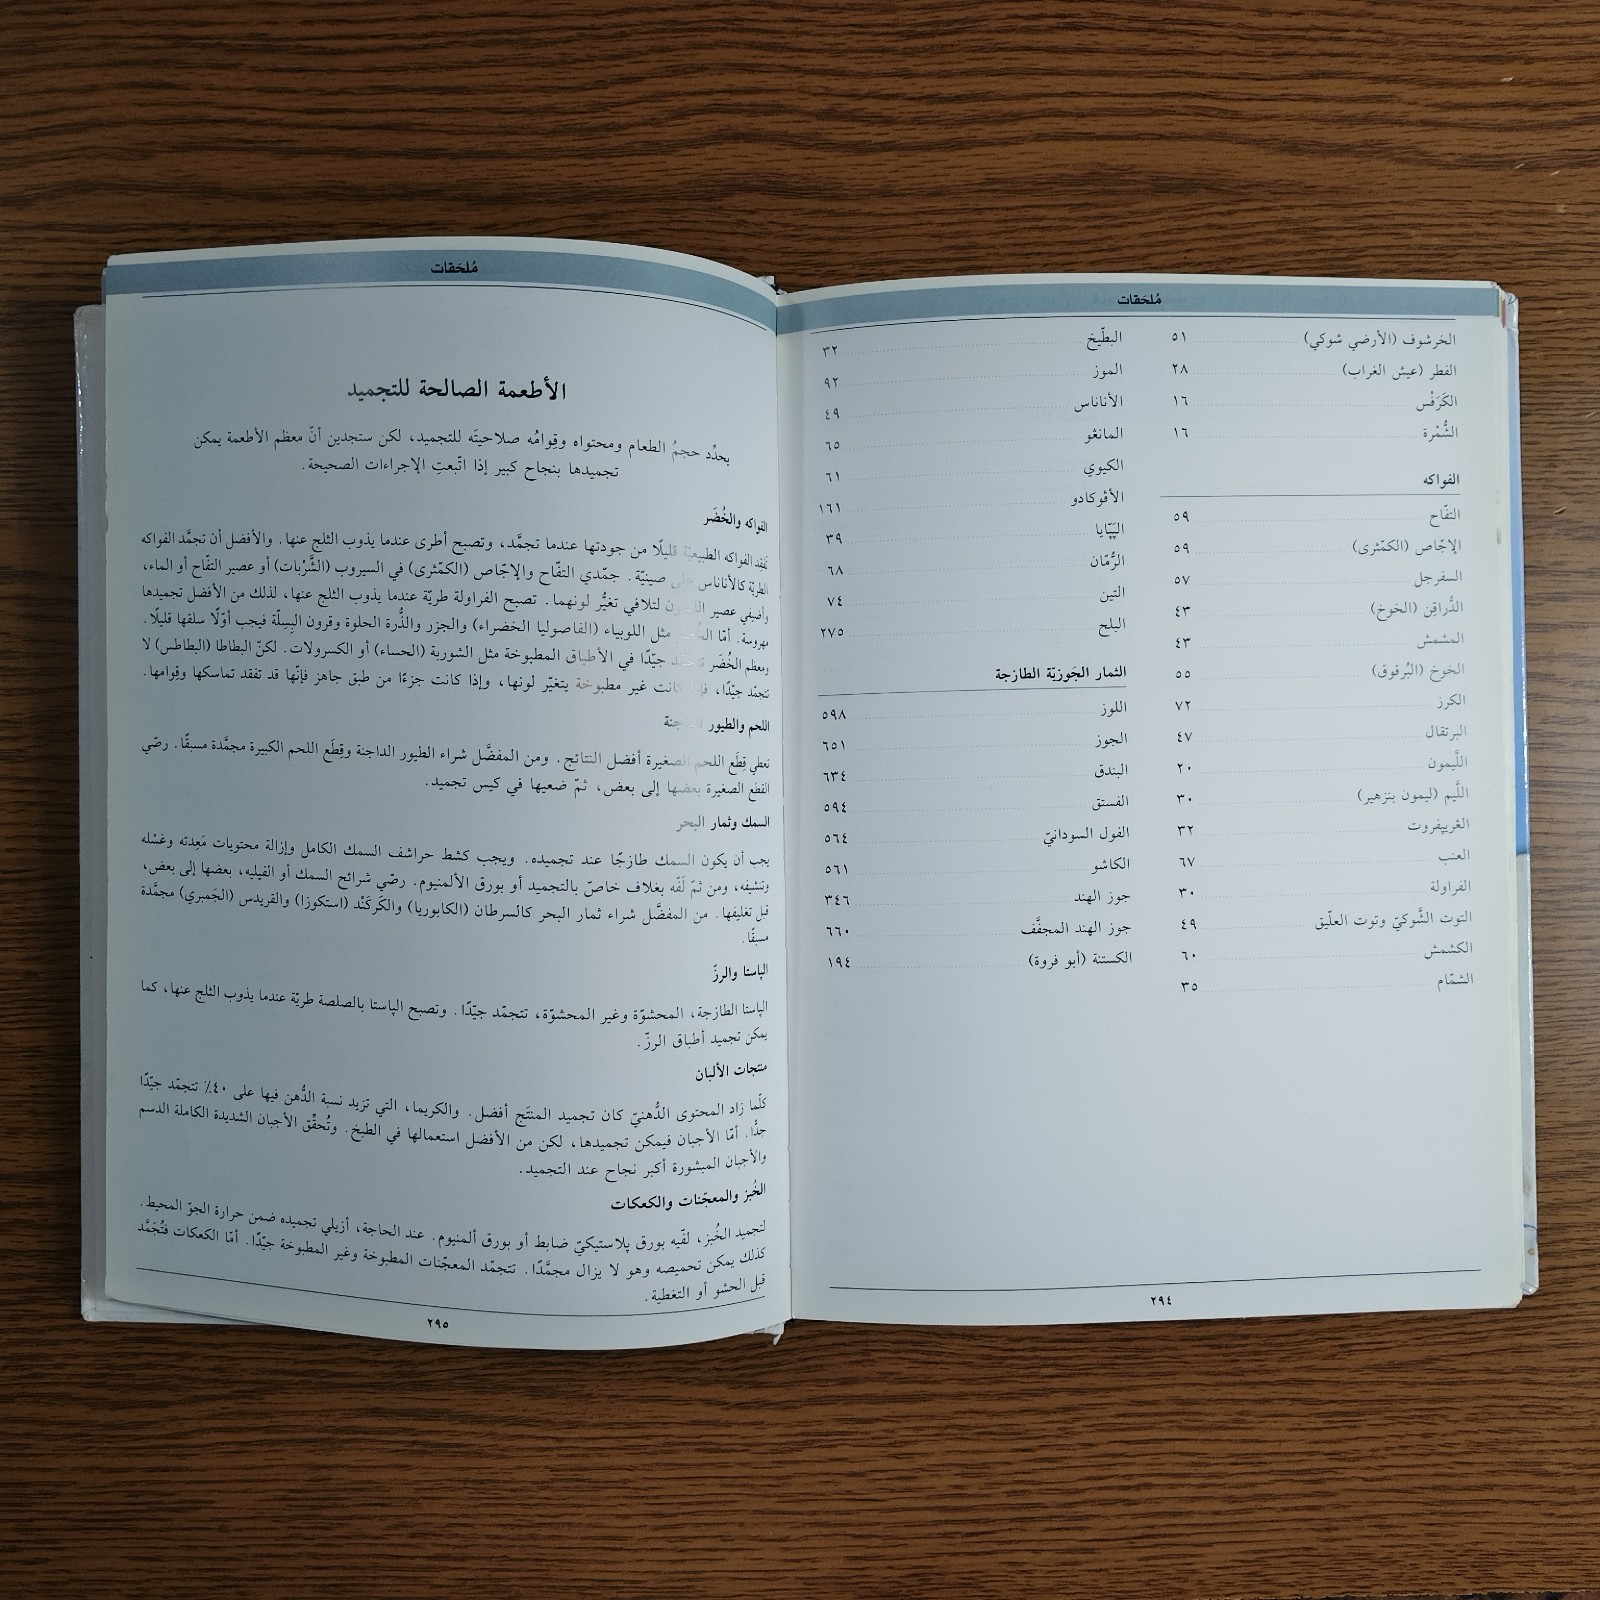 مُلحَقات
الخرشوف (الأرضي شوكي) ٥١
الفطر (عيش الغراب) ٢٨
الكَرَفْس ١٦
الشُّمْرة ١٦
الفواكه
التفّاح ٥٩
الإجّاص (الكمّثرى) ٥٩
السفرجل ٥٧
الدُّراقِن (الخوخ) ٤٣
المشمش ٤٣
الخوخ (البُرقوق) ٥٥
الكرز ٧٢
البرتقال ٤٧
اللَّيمون ٢٠
اللَّيم (ليمون بنزهير) ٣٠
الغريپفروت ٣٢
العنب ٦٧
الفراولة ٣٠
التوت الشَّوكيّ وتوت العلّيق ٤٩
الكشمش ٦٠
الشمّام ٣٥
البطّيخ ٣٢
الموز ٩٢
الأناناس ٤٩
المانغو ٦٥
الكيوي ٦١
الأڤوكادو ١٦١
الپَپَّايا ٣٩
الرُّمّان ٦٨
التين ٧٤
البلح ٢٧٥
الثمار الجَوزيّة الطازجة
اللوز ٥٩٨
الجوز ٦٥١
البندق ٦٣٤
الفستق ٥٩٤
الفول السودانيّ ٥٦٤
الكاشو ٥٦١
جوز الهند ٣٤٦
جوز الهند المجفَّف ٦٦٠
الكستنة (أبو فروة) ١٩٤
٢٩٤
مُلحَقات
الأطعمة الصالحة للتجميد
يحدِّد حجمُ الطعام ومحتواه وقِوامُه صلاحيتَه للتجميد، لكن ستجدين أنّ معظم الأطعمة يمكن
تجميدها بنجاح كبير إذا اتّبعتِ الإجراءات الصحيحة.
الفواكه والخُضَر
تفقد الفواكه الطبيعيّة قليلًا من جودتها عندما تجمَّد، وتصبح أطرى عندما يذوب الثلج عنها. والأفضل أن تجمَّد الفواكه
الطريّة كالأناناس على صينيّة. جمّدي التفّاح والإجّاص (الكمّثرى) في السيروب (الشَّرْبات) أو عصير التفّاح أو الماء،
وأضيفي عصير الليمون لتلافي تغيُّر لونهما. تصبح الفراولة طريّة عندما يذوب الثلج عنها، لذلك من الأفضل تجميدها
مهروسة. أمّا الخُضَر مثل اللوبياء (الفاصوليا الخضراء) والجزر والذُّرة الحلوة وقرون البِسِلّة فيجب أوّلًا سلقها قليلًا.
ومعظم الخُضَر تتجمّد جيّدًا في الأطباق المطبوخة مثل الشوربة (الحساء) أو الكسرولات. لكنّ البطاطا (البطاطس) لا
تتجمّد جيّدًا، فإذا كانت غير مطبوخة يتغيّر لونها، وإذا كانت جزءًا من طبق جاهز فإنّها قد تفقد تماسكها وقِوامها.
اللحم والطيور الداجنة
تعطي قِطَع اللحم الصغيرة أفضل النتائج. ومن المفضَّل شراء الطيور الداجنة وقِطَع اللحم الكبيرة مجمَّدة مسبقًا. رصّي
القطع الصغيرة بعضها إلى بعض، ثمّ ضعيها في كيس تجميد.
السمك وثمار البحر
يجب أن يكون السمك طازجًا عند تجميده. ويجب كشط حراشف السمك الكامل وإزالة محتويات مَعِدته وغسْله
وتنشيفه، ومن ثمّ لَفّه بغلاف خاصّ بالتجميد أو بورق الألمنيوم. رصّي شرائح السمك أو الفيليه، بعضها إلى بعض،
قبل تغليفها. من المفضَّل شراء ثمار البحر كالسرطان (الكابوريا) والكَركَنْد (استكوزا) والقريدس (الجَمبري) مجمَّدة
مسبقًا.
الپاستا والرزّ
الپاستا الطازجة، المحشوّة وغير المحشوّة، تتجمّد جيّدًا. وتصبح الپاستا بالصلصة طريّة عندما يذوب الثلج عنها، كما
يمكن تجميد أطباق الرزّ.
منتجات الألبان
كلّما زاد المحتوى الدُّهنيّ كان تجميد المنتَج أفضل. والكريما، التي تزيد نسبة الدُّهن فيها على ٤٠٪ تتجمّد جيّدًا
جدًّا. أمّا الأجبان فيمكن تجميدها، لكن من الأفضل استعمالها في الطبخ. وتُحقِّق الأجبان الشديدة الكاملة الدسم
والأجبان المبشورة أكبر نجاح عند التجميد.
الخُبز والمعجّنات والكعكات
لتجميد الخُبز، لفّيه بورق پلاستيكيّ ضابط أو بورق ألمنيوم. عند الحاجة، أزيلي تجميده ضمن حرارة الجوّ المحيط.
كذلك يمكن تحميصه وهو لا يزال مجمَّدًا. تتجمّد المعجّنات المطبوخة وغير المطبوخة جيّدًا. أمّا الكعكات فتُجَمَّد
قبل الحشو أو التغطية.
٢٩٥